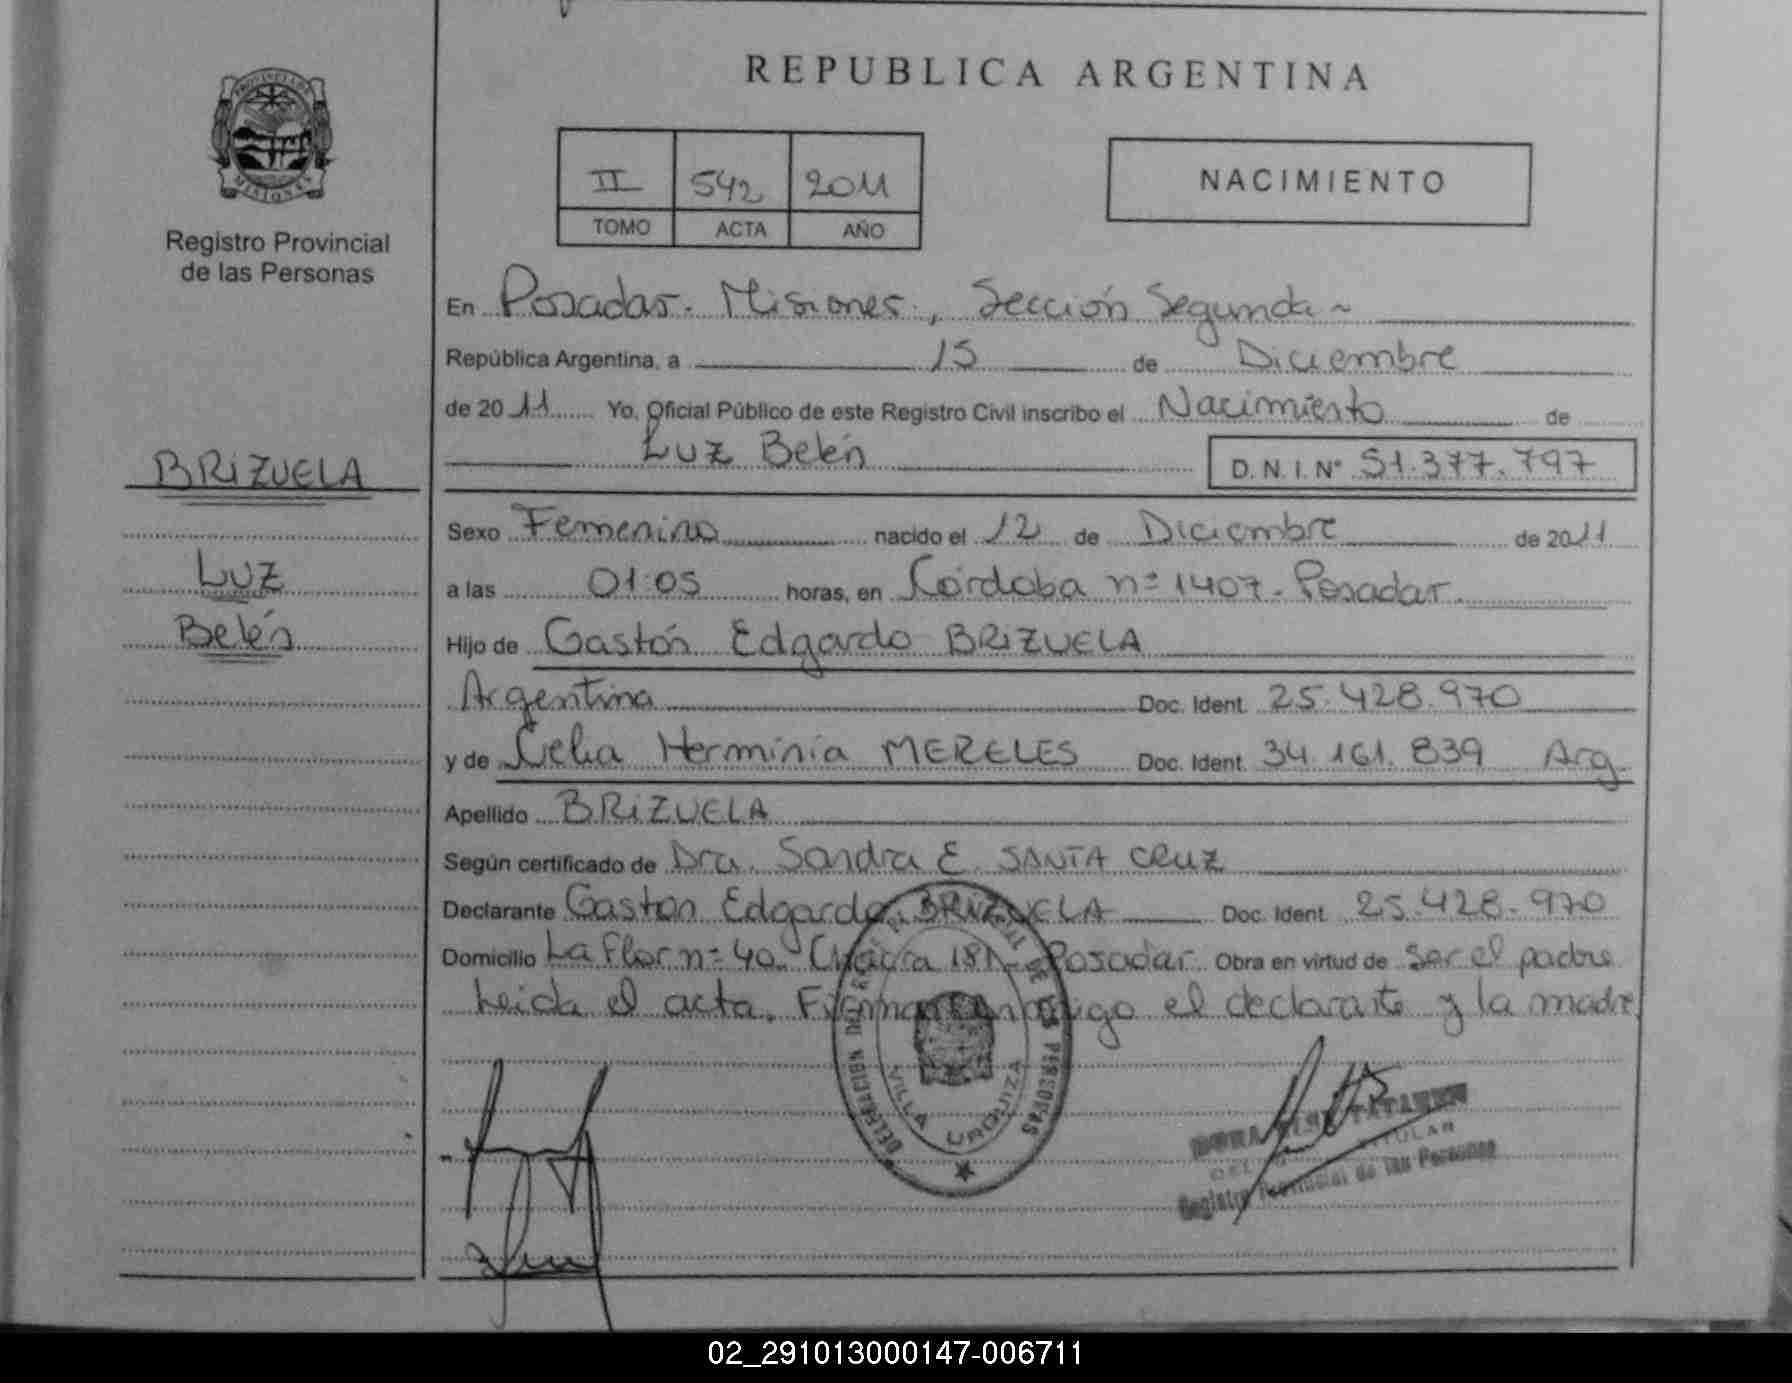 REPUBLICA ARGENTINA
PROVINCIA DE
MISIONES
Registro Provincial
de las Personas
II 542 2011
TOMO ACTA AÑO
NACIMIENTO
En Posadas. Misiones, Sección Segunda ~
República Argentina, a 15 de Diciembre
de 2011 Yo, Oficial Público de este Registro Civil inscribo el Nacimiento de
Luz Belén D.N.I. N° 51.377.797
BRIZUELA
Luz
Belén
Sexo Femenino nacido el 12 de Diciembre de 2011
a las 01:05 horas, en Córdoba n= 1407. Posadas.
Hijo de Gastón Edgardo BRIZUELA
Argentina Doc. Ident. 25.428.970
y de Celia Herminia MERELES Doc. Ident. 34.161.839 Arg.
Apellido BRIZUELA
Según certificado de Dra. Sandra E. SANTA CRUZ
Declarante Gastón Edgardo BRIZUELA Doc. Ident. 25.428.970
Domicilio La Flor n= 40. Chacra 181. Posadas. Obra en virtud de Ser el padre
Leida el acta. Firman conmigo el declarante y la madre
DELEGACION DEL REG. PROVINCIAL DE LAS PERSONAS
VILLA URQUIZA
TITULAR
Registro Provincial de las Personas
02_291013000147-006711